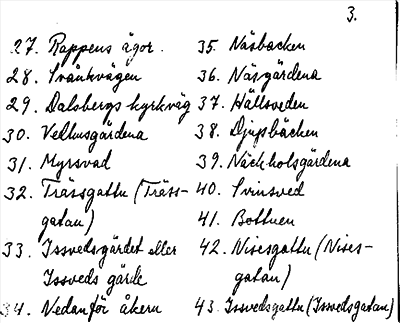 3.
27. Rappens ågor.
28. Svänkvägen
29. Dalsbergs kyrkväg
30. Vedhusgärdena
31. Myrsvad
32. Trässgattu (Träss-
gatan)
33. Issvedsgärdet eller
Issveds gärde
34. Nedanför åkern
35. Näsbacken
36. Näsgärdena
37. Hällsveden
38. Djupbäcken
39. Näckholsgärdena
40. Svinsved
41. Bottnen
42. Nisesgattu (Nises-
gatan)
43. Issvedsgattu (Issvedsgatan)